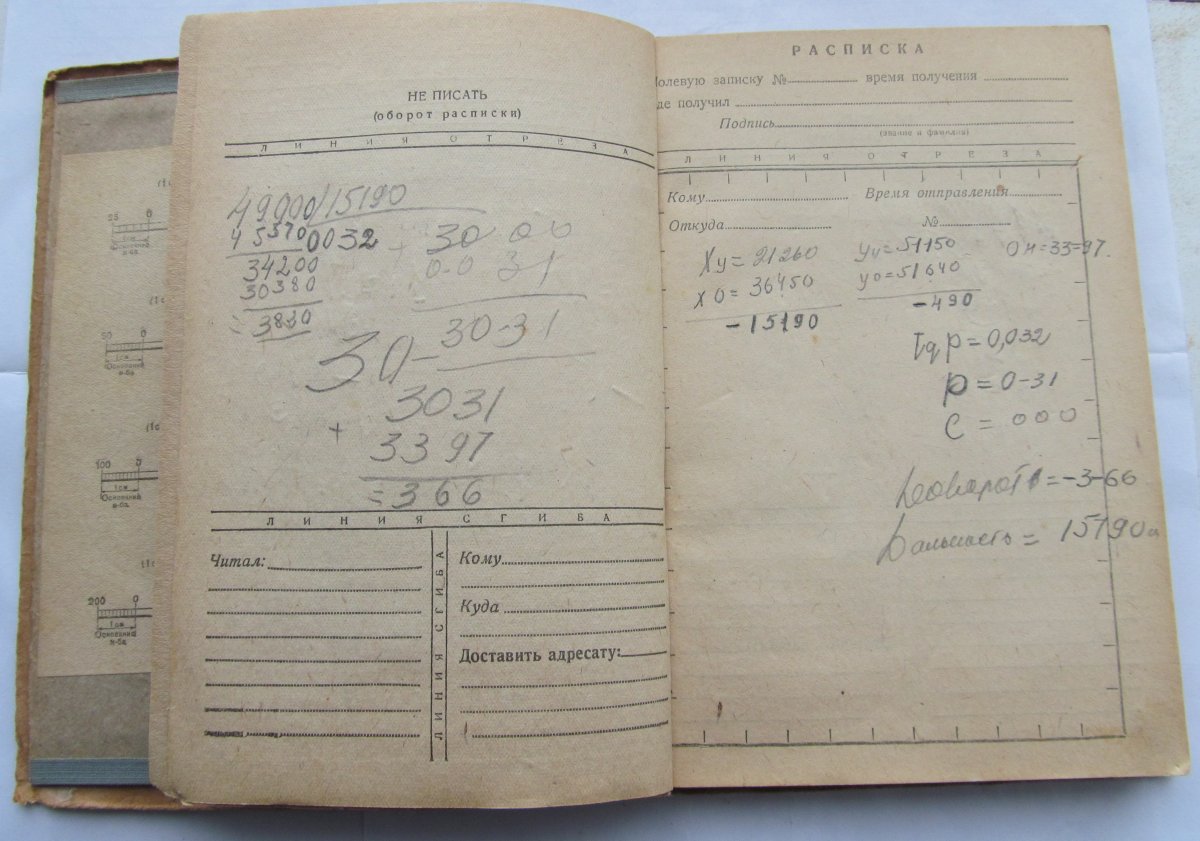 НЕ ПИСАТЬ
(оборот расписки)
ЛИНИЯ ОТРЕЗА
49000/15190
45570 0032
34200
30380
= 3820
+ 30 00
0-0 31
30-30-31
3031
+ 3397
= 366
ЛИНИЯ СГИБА
Читал:
ЛИНИЯ СГИБА
Кому
Куда
Доставить адресату:
25 0
1 см
Основание
м-ба
50 0
1 см
Основание
м-ба
100 0
1 см
Основание
м-ба
200 0
1 см
Основание
м-ба
РАСПИСКА
олевую записку № время получения
де получил
Подпись
(звание и фамилия)
ЛИНИЯ ОТРЕЗА
Кому Время отправления
Откуда №
Xу = 21260 Yу = 51150 Он = 33=97.
X0 = 36450 Y0 = 51640
-15190 -490
Tg p = 0,032
p = 0-31
C = 000
Доворот = -3-66
Дальность = 15190м